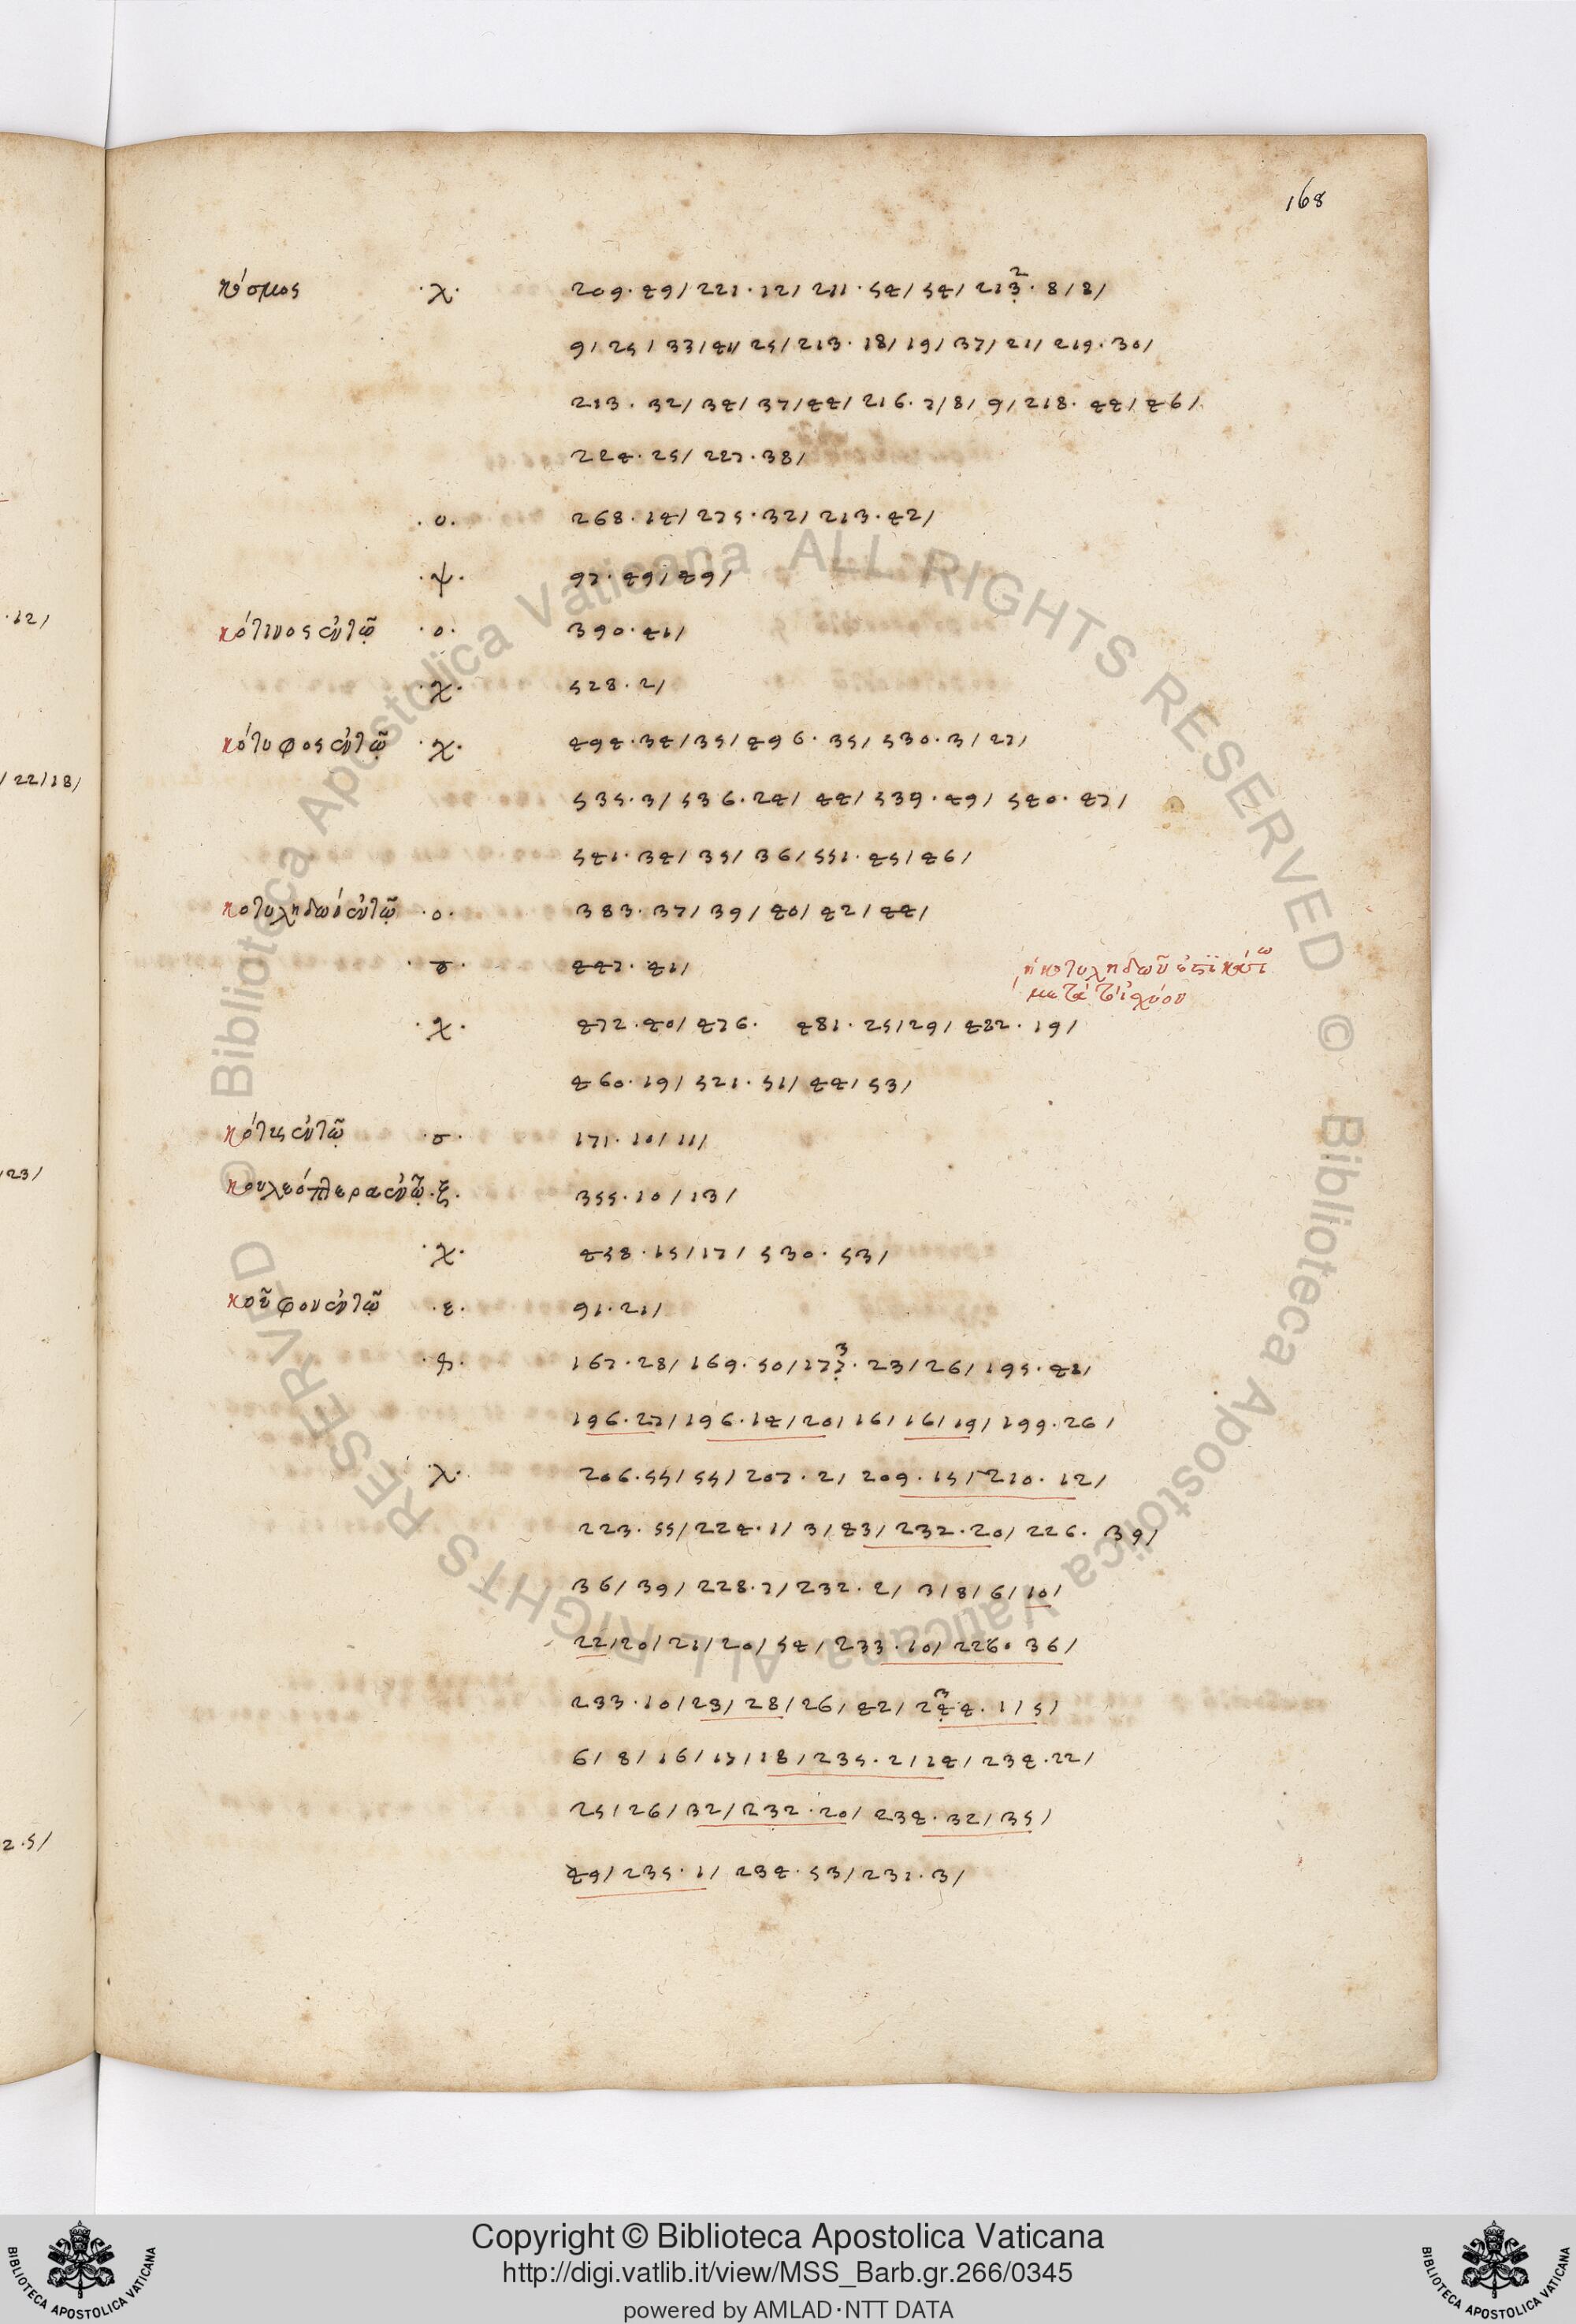 168
κόσμος ·χ· 209·49/ 221·12/ 211·54/ 54/ 213·8/8/
2
9/ 25/ 33/ 41/ 25/ 213·18/ 19/ 37/ 21/ 219·30/
213·32/ 34/ 37/ 44/ 216·7/ 8/ 9/ 218·44/ 46/
224·25/ 227·38/
·ο· 268·14/ 275·32/ 213·42/
·ψ· 97·49/ 49/
κότινος ἐν τῷ ·ο· 390·41/
·χ· 528·2/
κότυφος ἐν τῷ ·χ· 494·34/ 35/ 496·35/ 530·3/ 27/
535·3/ 536·24/ 44/ 539·49/ 540·47/
541·34/ 35/ 36/ 551·45/ 46/
κοτυληδων ἐν τῷ ·ο· 383·37/ 39/ 40/ 42/ 44/
447·41/
·χ· 472·40/ 476· 481·25/ 29/ 482·19/
460·19/ 521·51/ 44/ 53/
κότυς ἐν τῷ ·σ· 171·10/ 11/
κουλεόπτερα ἐν τῷ ·ξ· 355·10/ 13/
·χ· 458·15/ 17/ 530·53/
κοῦφον ἐν τῷ ·ε· 91·21/
167·28/ 169·50/ 177·23/ 26/ 195·41/
3
196·27/ 196·14/ 20/ 16/ 16/ 19/ 199·26/
·χ· 206·55/ 55/ 207·2/ 209·15/ 210·12/
223·55/ 224·1/ 3/ 43/ 232·20/ 226·39/
36/ 39/ 228·7/ 232·2/ 3/ 8/ 6/ 10/
22/ 20/ 21/ 20/ 54/ 233·10/ 226·36/
233·10/ 23/ 28/ 26/ 42/ 244·1/ 5/
3
6/ 8/ 16/ 17/ 18/ 235·2/ 14/ 234·22/
25/ 26/ 32/ 232·20/ 234·32/ 35/
49/ 235·1/ 234·53/ 231·3/
·12/
/22/18/
/23/
2·5/
© Biblioteca Apostolica Vaticana ALL RIGHTS RESERVED © Biblioteca Apostolica Vaticana ALL RIGHTS RESERVED
Copyright © Biblioteca Apostolica Vaticana
http://digi.vatlib.it/view/MSS_Barb.gr.266/0345
powered by AMLAD·NTT DATA
BIBLIOTECA APOSTOLICA VATICANA
BIBLIOTECA APOSTOLICA VATICANA